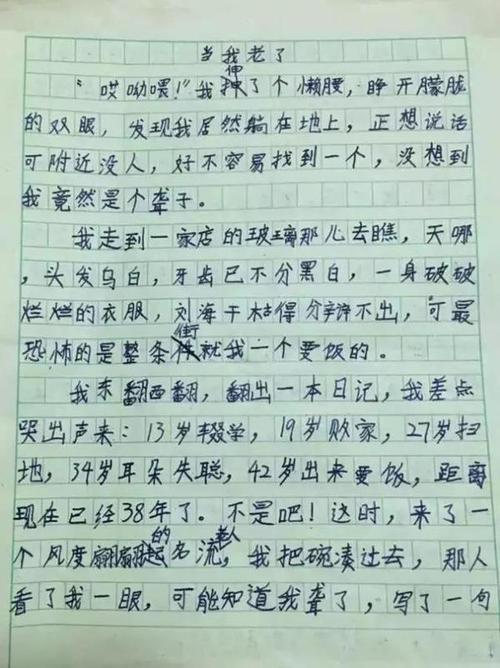 当我老了
“哎呦喂!”我伸了个懒腰，睁开朦胧
的双眼，发现我居然躺在地上，正想说话
可附近没人，好不容易找到一个，没想到
我竟然是个聋子。
我走到一家店的玻璃那儿去瞧，天哪
，头发乌白，牙齿已不分黑白，一身破破
烂烂的衣服，刘海干枯得分辨不出，可最
恐怖的是整条街就我一个要饭的。
我东翻西翻，翻出一本日记，我差点
哭出声来：13岁辍学，19岁败家，27岁扫
地，34岁耳朵失聪，42岁出来要饭，距离
现在已经38年了。不是吧！这时，来了一
个风度翩翩的名流老人，我把碗凑过去，那人
看了我一眼，可能知道我聋了，写了一句